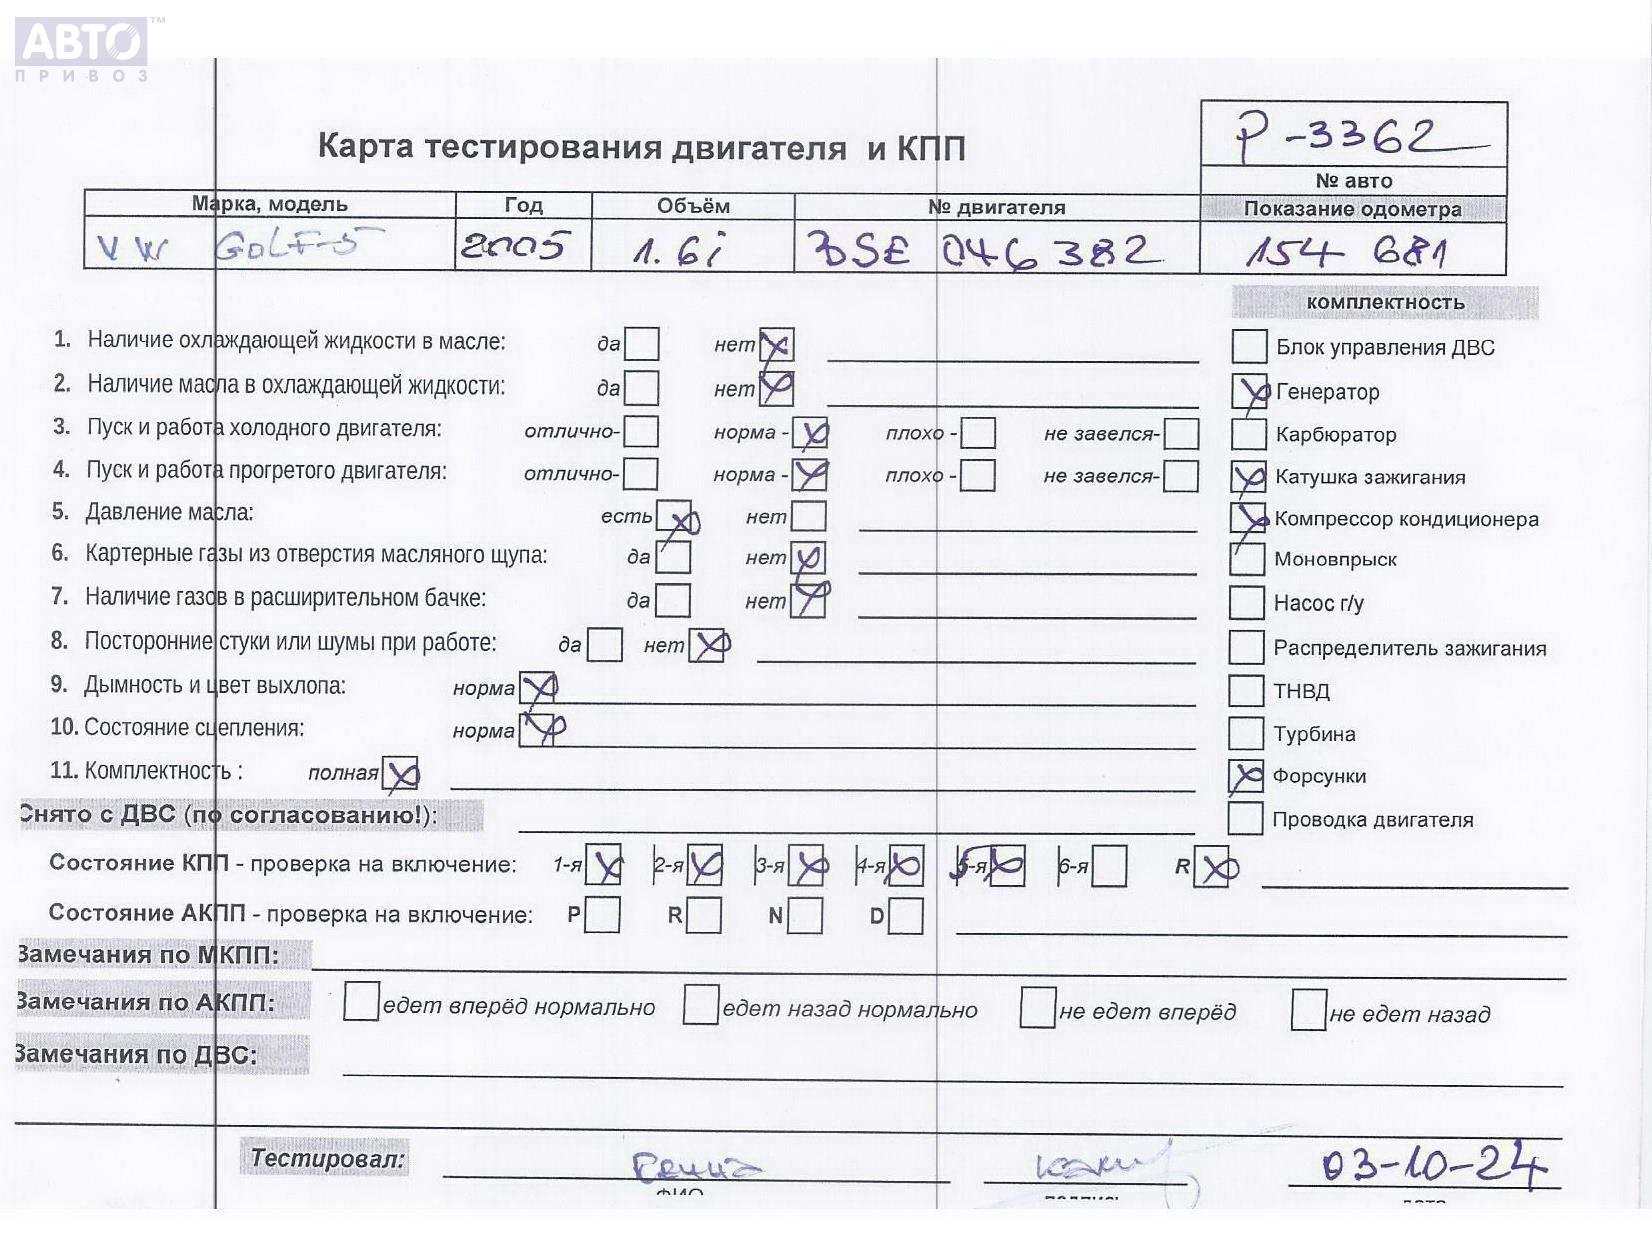 АВТО™
ПРИВОЗ
P-3362
Карта тестирования двигателя и КПП
№ авто
Марка, модель Год Объём № двигателя Показание одометра
VW GOLF-5 2005 1.6i BSE 046 382 154 681
комплектность
1. Наличие охлаждающей жидкости в масле: да нет Блок управления ДВС
2. Наличие масла в охлаждающей жидкости: да нет Генератор
3. Пуск и работа холодного двигателя: отлично- норма - плохо - не завелся- Карбюратор
4. Пуск и работа прогретого двигателя: отлично- норма - плохо - не завелся- Катушка зажигания
5. Давление масла: есть нет Компрессор кондиционера
6. Картерные газы из отверстия масляного щупа: да нет Моновпрыск
7. Наличие газов в расширительном бачке: да нет Насос г/у
8. Посторонние стуки или шумы при работе: да нет Распределитель зажигания
9. Дымность и цвет выхлопа: норма ТНВД
10. Состояние сцепления: норма Турбина
11. Комплектность : полная Форсунки
Снято с ДВС (по согласованию!): Проводка двигателя
Состояние КПП - проверка на включение: 1-я 2-я 3-я 4-я 5-я 6-я R
Состояние АКПП - проверка на включение: P R N D
Замечания по МКПП:
Замечания по АКПП: едет вперёд нормально едет назад нормально не едет вперёд не едет назад
Замечания по ДВС:
Тестировал: 03-10-24
ФИО подпись дата